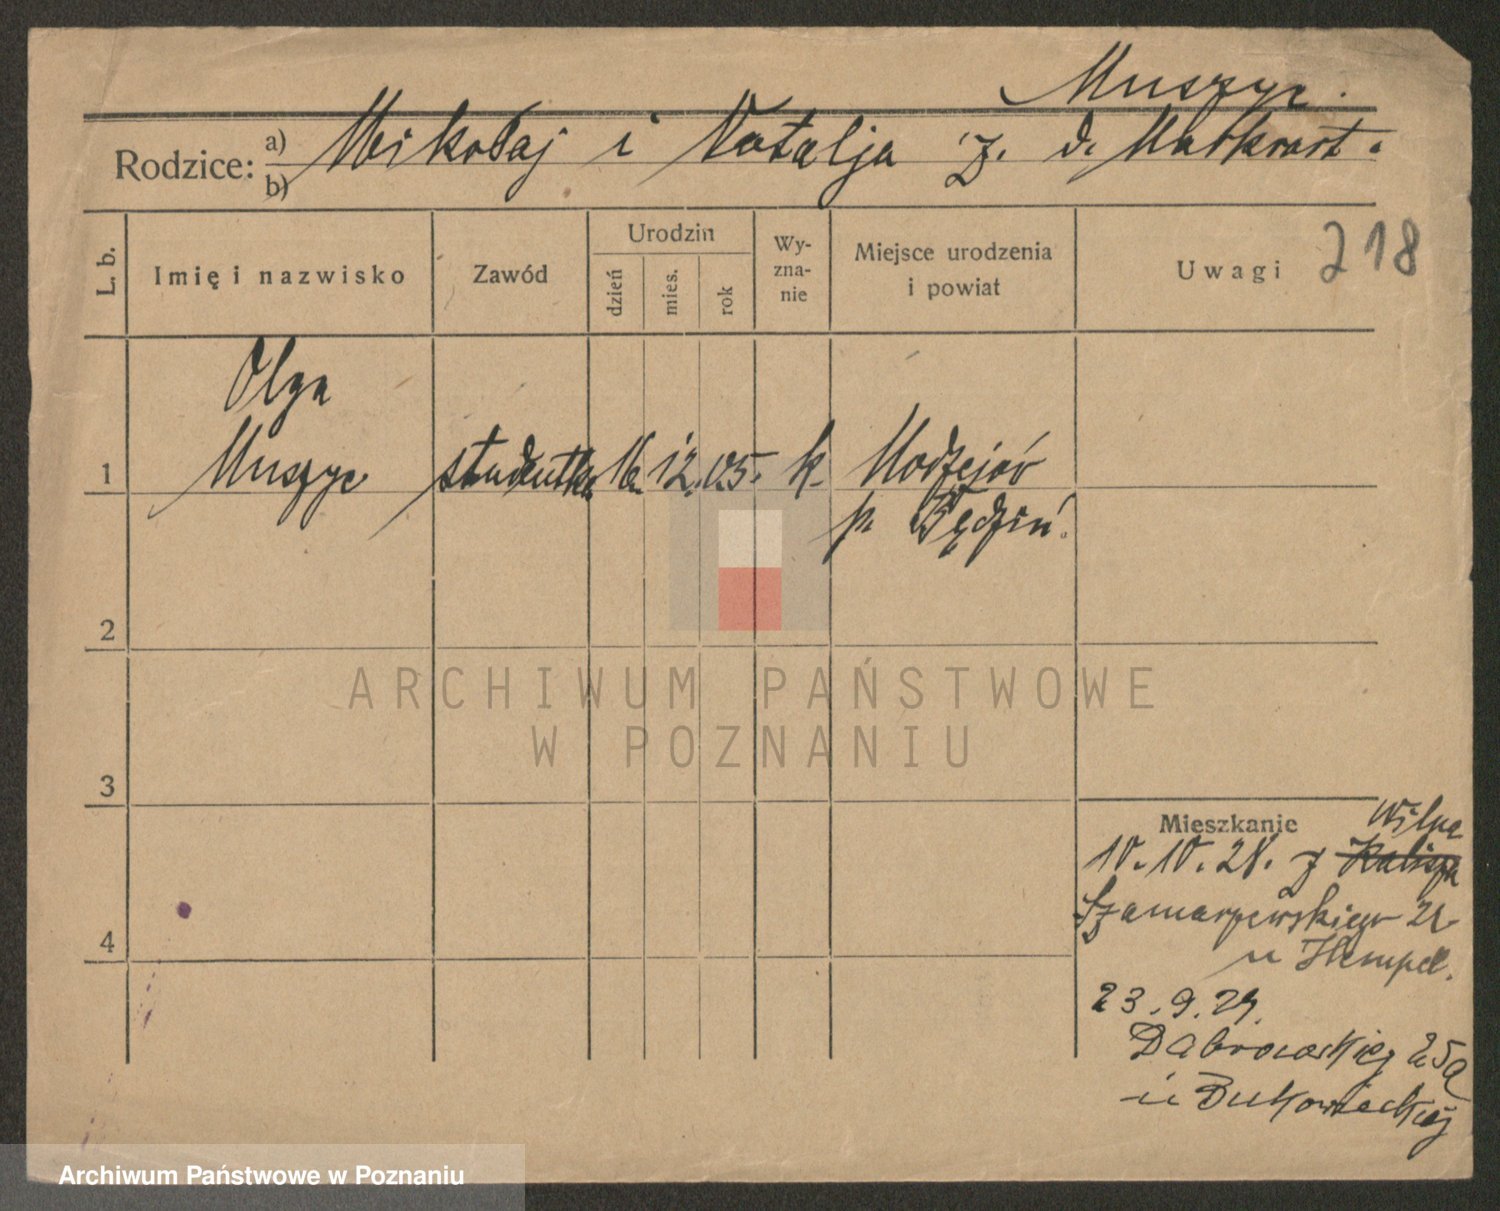 Muszyc.
Rodzice: a) b) Mikołaj i Natalja z. d.
L. b.
Imię i nazwisko
Zawód
Urodzin
dzień
mies.
rok
Wy-
zna-
nie
Miejsce urodzenia
i powiat
Uwagi
218
Olga
1 Muszyc studentka 16. 12. 05. k. Modzejów
p. Będzin.
2
ARCHIWUM PAŃSTWOWE
W POZNANIU
3
Mieszkanie Wilna
10. 10. 28. z Kalisza
Szamarzewskiego 21
u Hempel.
4
23. 9. 29.
Dąbrowskiej 25a
u Bukowieckiej
Archiwum Państwowe w Poznaniu